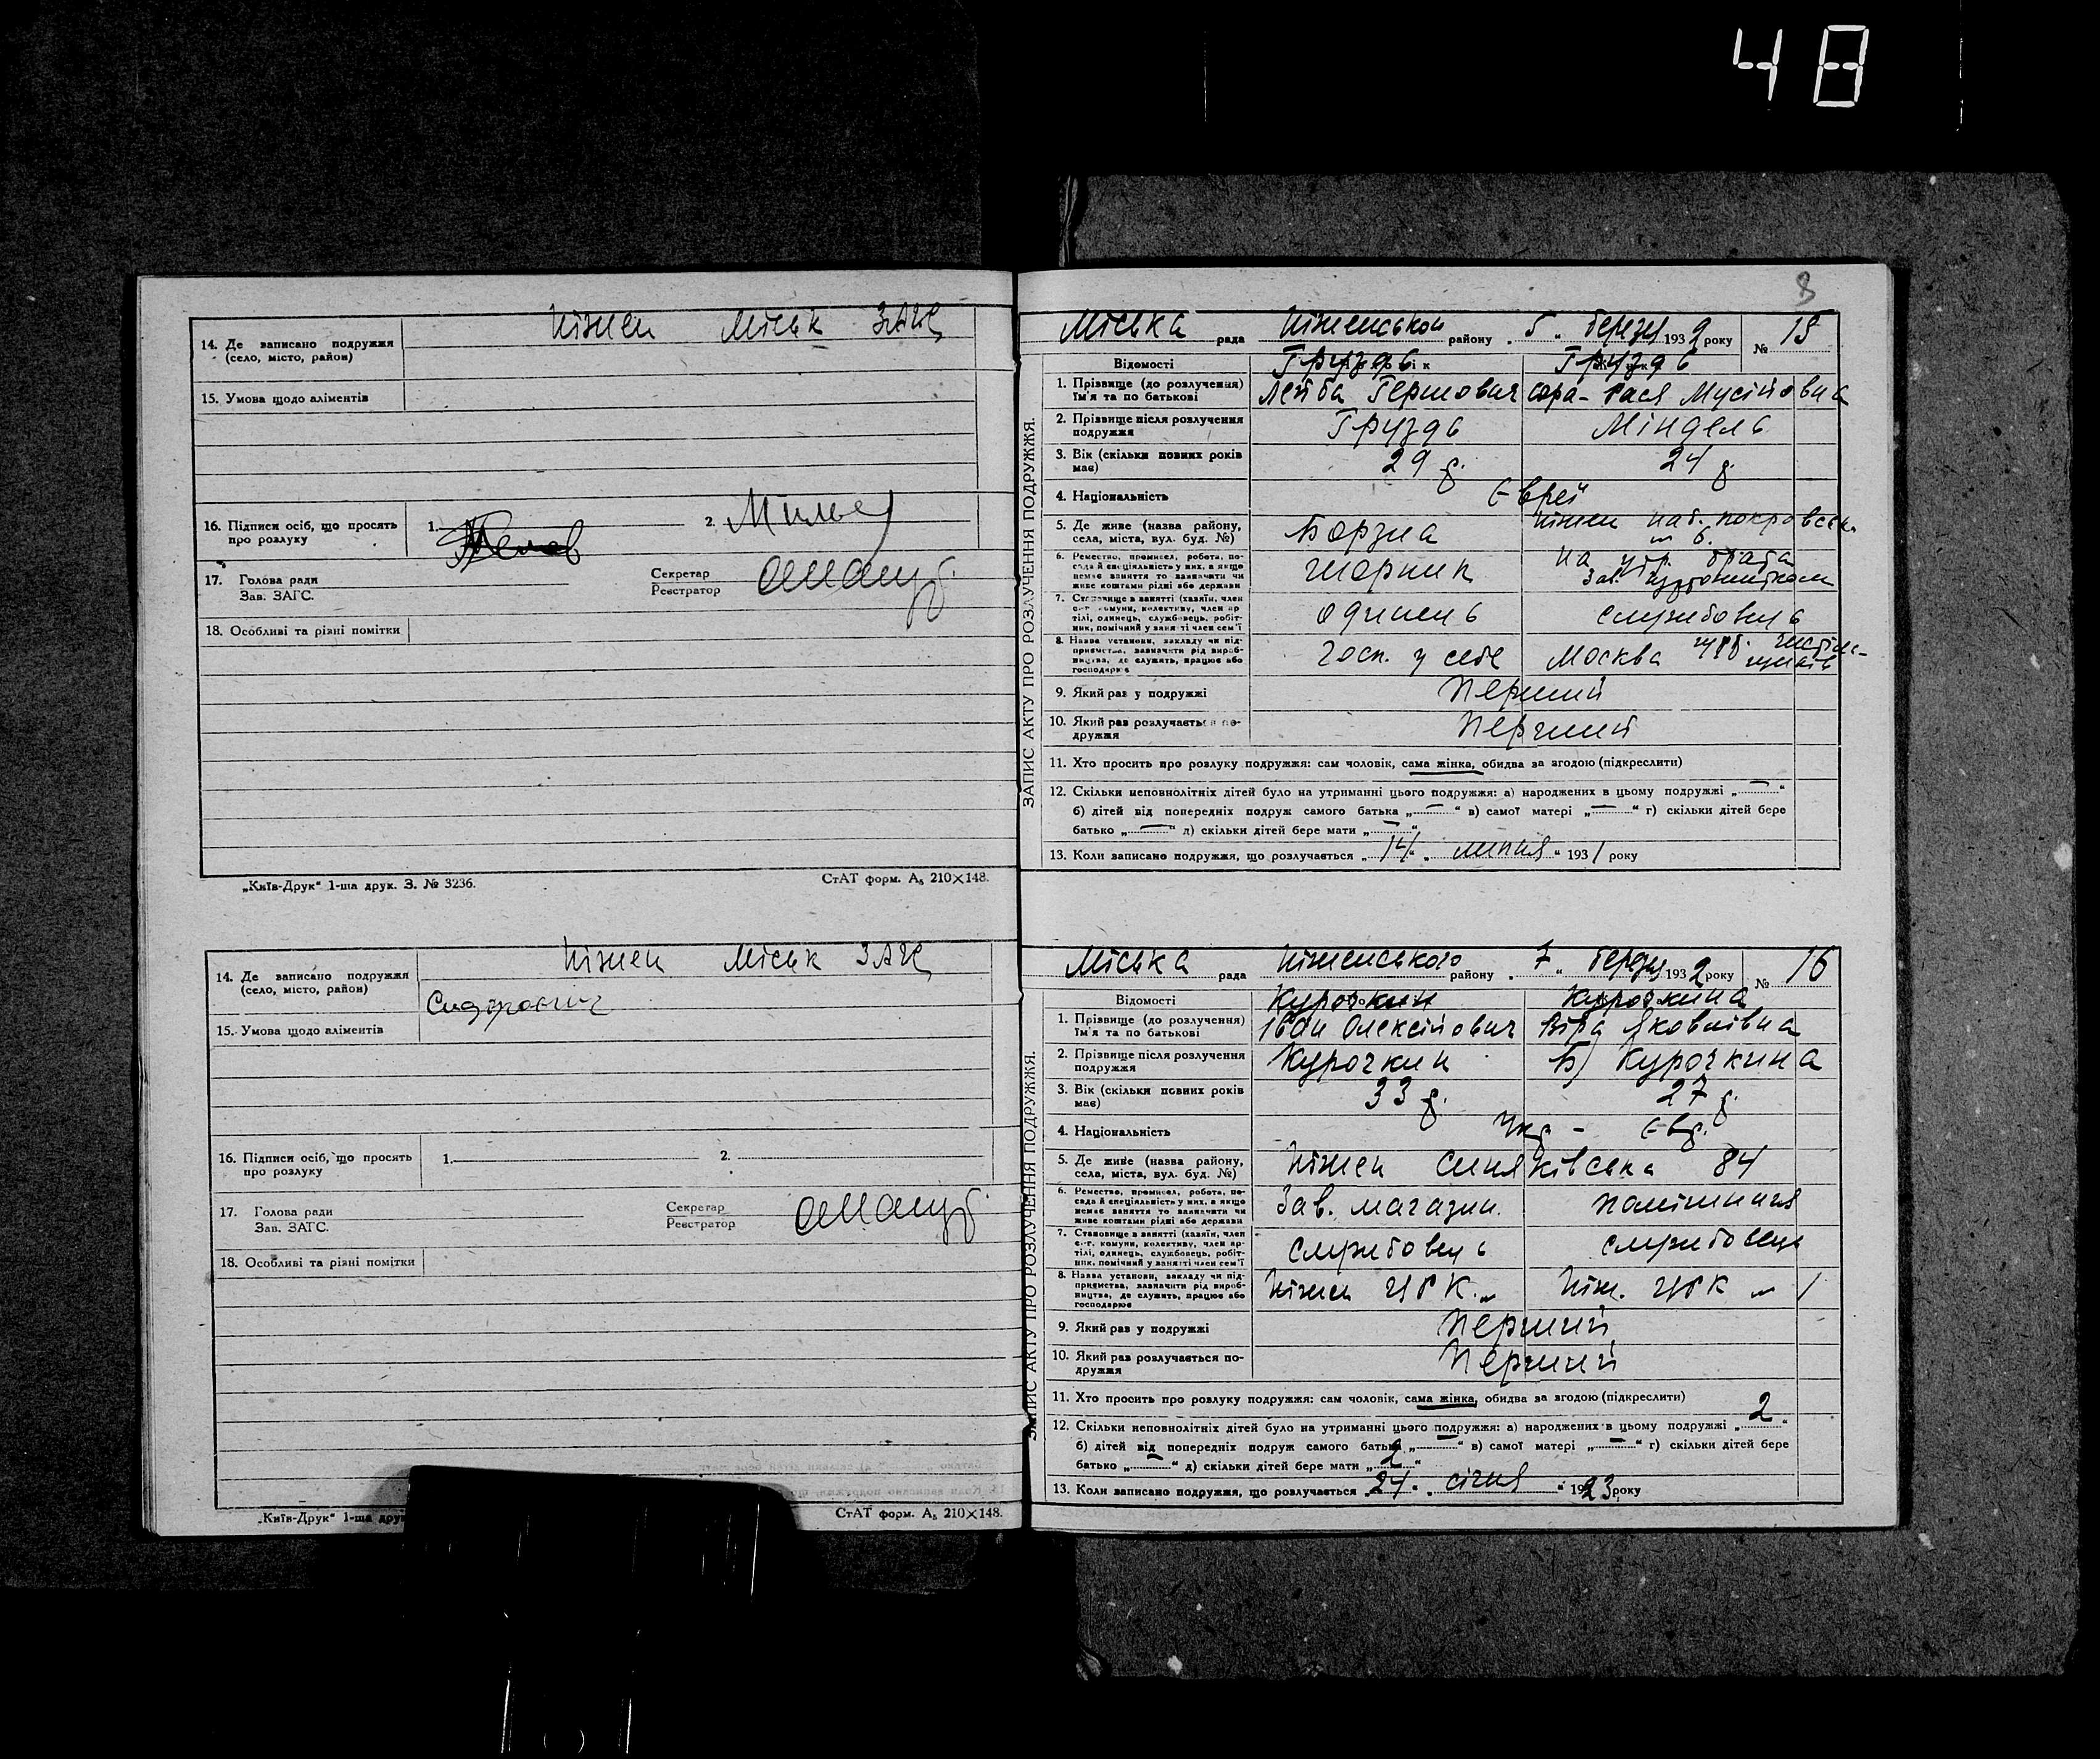 48
14. Де записано подружжя
(село, місто, район)
Ніжен Міськ ЗАГС
15. Умова щодо аліментів
16. Підписи осіб, що просять
про розлуку
1.
2.
17. Голова ради
Зав. ЗАГС.
Секретар
Реєстратор
18. Особливі та різні помітки
„Київ-Друк“ 1-ша друк. З. № 3236.
СтАТ форм. А₅ 210×148.
14. Де записано подружжя
(село, місто, район)
Ніжен Міськ ЗАГС
15. Умова щодо аліментів
16. Підписи осіб, що просять
про розлуку
1.
2.
17. Голова ради
Зав. ЗАГС.
Секретар
Реєстратор
18. Особливі та різні помітки
„Київ-Друк“ 1-ша друк
СтАТ форм. А₅ 210×148.
8
ЗАПИС АКТУ ПРО РОЗЛУЧЕННЯ ПОДРУЖЖЯ.
Міська рада Ніженського району „ 5 „ березу 1932 року № 15
Відомості
Груздь Груздь
1. Прізвище (до розлучення)
Ім'я та по батькові
Лейба Гершович Сора-Гася Мусійовна
2. Прізвище після розлучення
подружжя
Груздь Міндель
3. Вік (скільки повних років
має)
29 р. 24 р.
4. Національність
Євреї
5. Де живе (назва району,
села, міста, вул. буд. №)
Борзна Ніжен наб. покровськ.
6.
6. Ремество, промисел, робота, по-
сада й спеціяльність у них, а якщо
немає заняття то зазначити чи
живе коштами рідні або держави
Шорник На утр. брата
Зав. гуртожитком
7. Становище в занятті (хазяїн, член
с.-г. комуни, колективу, член ар-
тілі, одинець, службовець, робіт-
ник, помічний у занятті член сем'ї
Одинець службовець
8. Назва установи, закладу чи під-
приємства, зазначити рід вироб-
ництва, де служить, працює або
господарює
Госп. у себе Москва
9. Який раз у подружжі
Перший
10. Який раз розлучається по-
дружжя
Перший
11. Хто просить про розлуку подружжя: сам чоловік, сама жінка, обидва за згодою (підкреслити)
12. Скільки неповнолітніх дітей було на утриманні цього подружжя: а) народжених в цьому подружжі „ — “
б) дітей від попередніх подруж самого батька „ — “ в) самої матері „ — “ г) скільки дітей бере
батько „ — “ д) скільки дітей бере мати „ — “
13. Коли записано подружжя, що розлучається „ 14 “ „ липня “ 1931 року
ЗАПИС АКТУ ПРО РОЗЛУЧЕННЯ ПОДРУЖЖЯ.
Міська рада Ніженського району „ 7 „ березу 1932 року № 16
Відомості
Курочкин Курочкина
1. Прізвище (до розлучення)
Ім'я та по батькові
Іван Олексійович Віра Яковлівна
2. Прізвище після розлучення
подружжя
Курочкин Б) Курочкина
3. Вік (скільки повних років
має)
33 р. 27 р.
4. Національність
Укр - Євр.
5. Де живе (назва району,
села, міста, вул. буд. №)
Ніжен Синяківська 84
6. Ремество, промисел, робота, по-
сада й спеціяльність у них, а якщо
немає заняття то зазначити чи
живе коштами рідні або держави
Зав. магазин.
7. Становище в занятті (хазяїн, член
с.-г. комуни, колективу, член ар-
тілі, одинець, службовець, робіт-
ник, помічний у занятті член сем'ї
службовець службовець
8. Назва установи, закладу чи під-
приємства, зазначити рід вироб-
ництва, де служить, працює або
господарює
Ніжен ЦРК Ніж. ЦРК
9. Який раз у подружжі
Перший
10. Який раз розлучається по-
дружжя
Перший
11. Хто просить про розлуку подружжя: сам чоловік, сама жінка, обидва за згодою (підкреслити)
12. Скільки неповнолітніх дітей було на утриманні цього подружжя: а) народжених в цьому подружжі „ 2 “
б) дітей від попередніх подруж самого батька „ — “ в) самої матері „ — “ г) скільки дітей бере
батько „ — “ д) скільки дітей бере мати „ 2 “
13. Коли записано подружжя, що розлучається „ 24 “ „ січня “ 1923 року